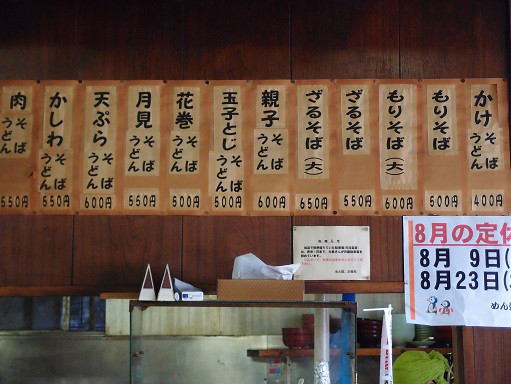 かけ そば うどん 400円
もりそば 500円
もりそば(大) 600円
ざるそば 550円
ざるそば(大) 650円
親子 そば うどん 600円
玉子とじ そば うどん 600円
花巻 そば うどん 500円
月見 そば うどん 550円
天ぷら そば うどん 600円
かしわ そば うどん 550円
肉 そば うどん 550円
8月の定休
8月 9日(
8月23日(
めん